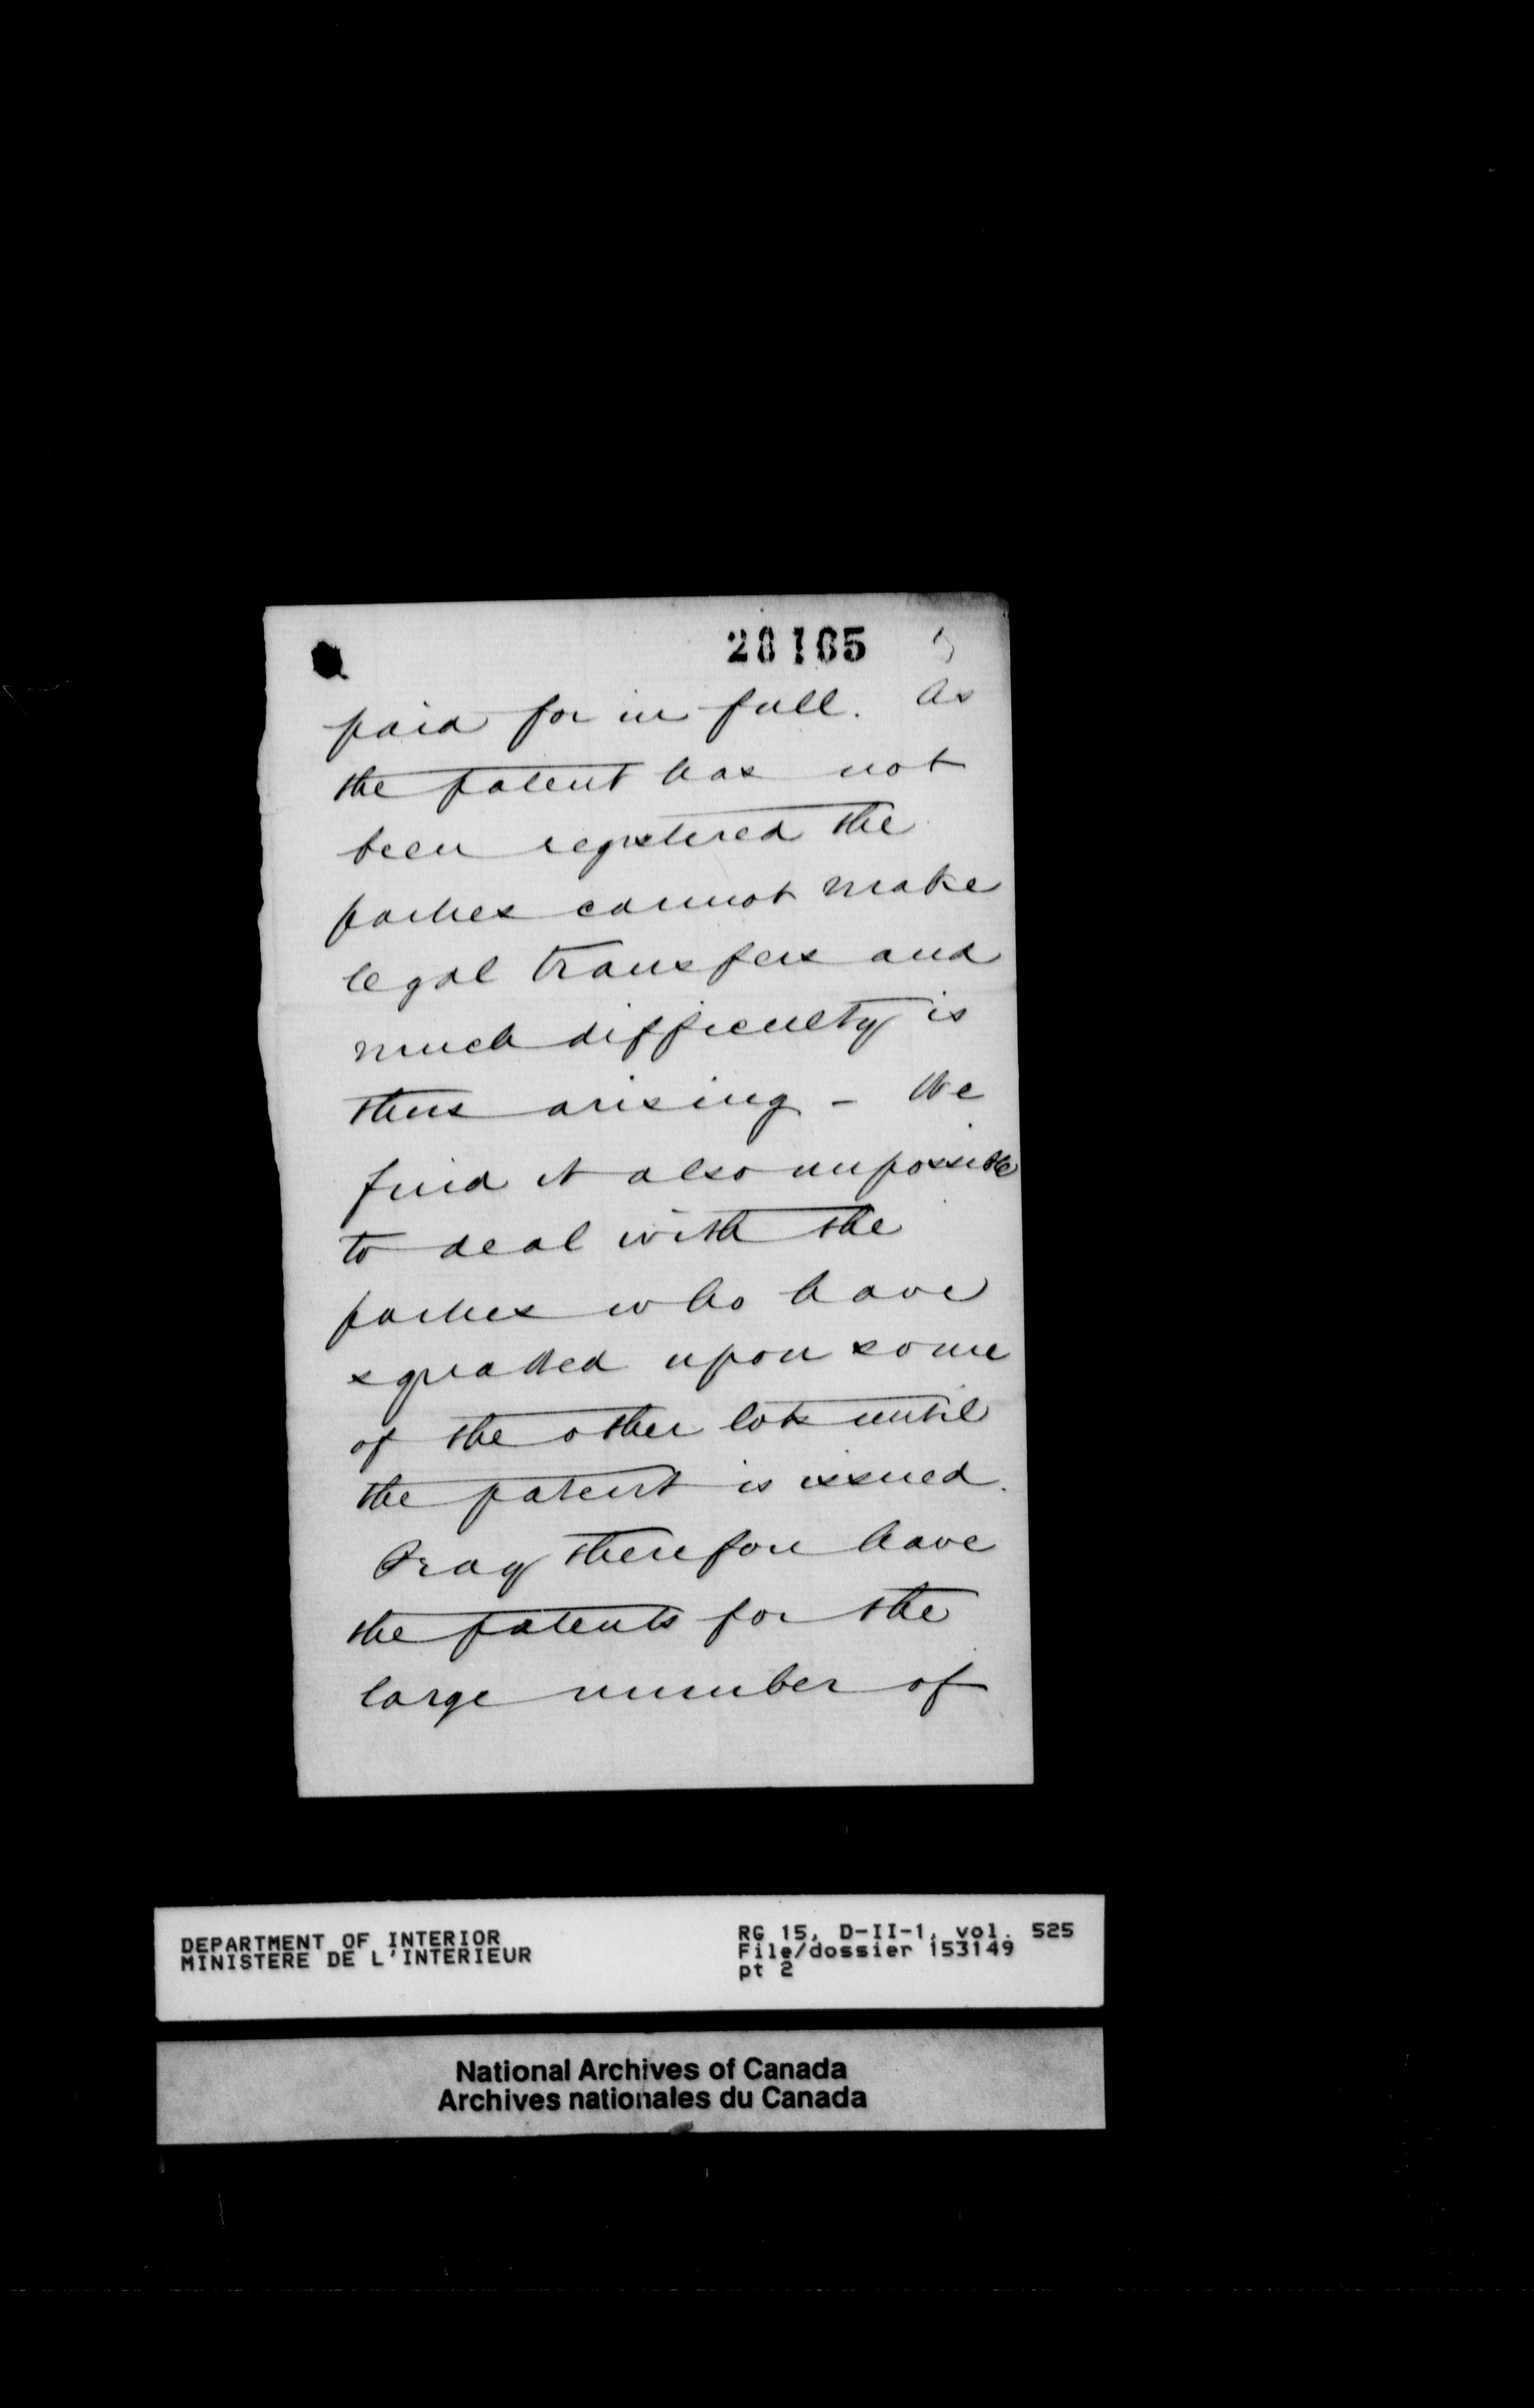 28165
paid for in full. As
the patent has not
been registered the
parties cannot make
legal transfers and
much difficulty is
thus arising - We
find it also impossible
to deal with the
parties who have
squatted upon some
of the other lots until
the patent is issued.
Pray therefore have
the patents for the
large number of
DEPARTMENT OF INTERIOR
MINISTERE DE L'INTERIEUR
RG 15, D-II-1, vol. 525
File/dossier 153149
pt 2
National Archives of Canada
Archives nationales du Canada